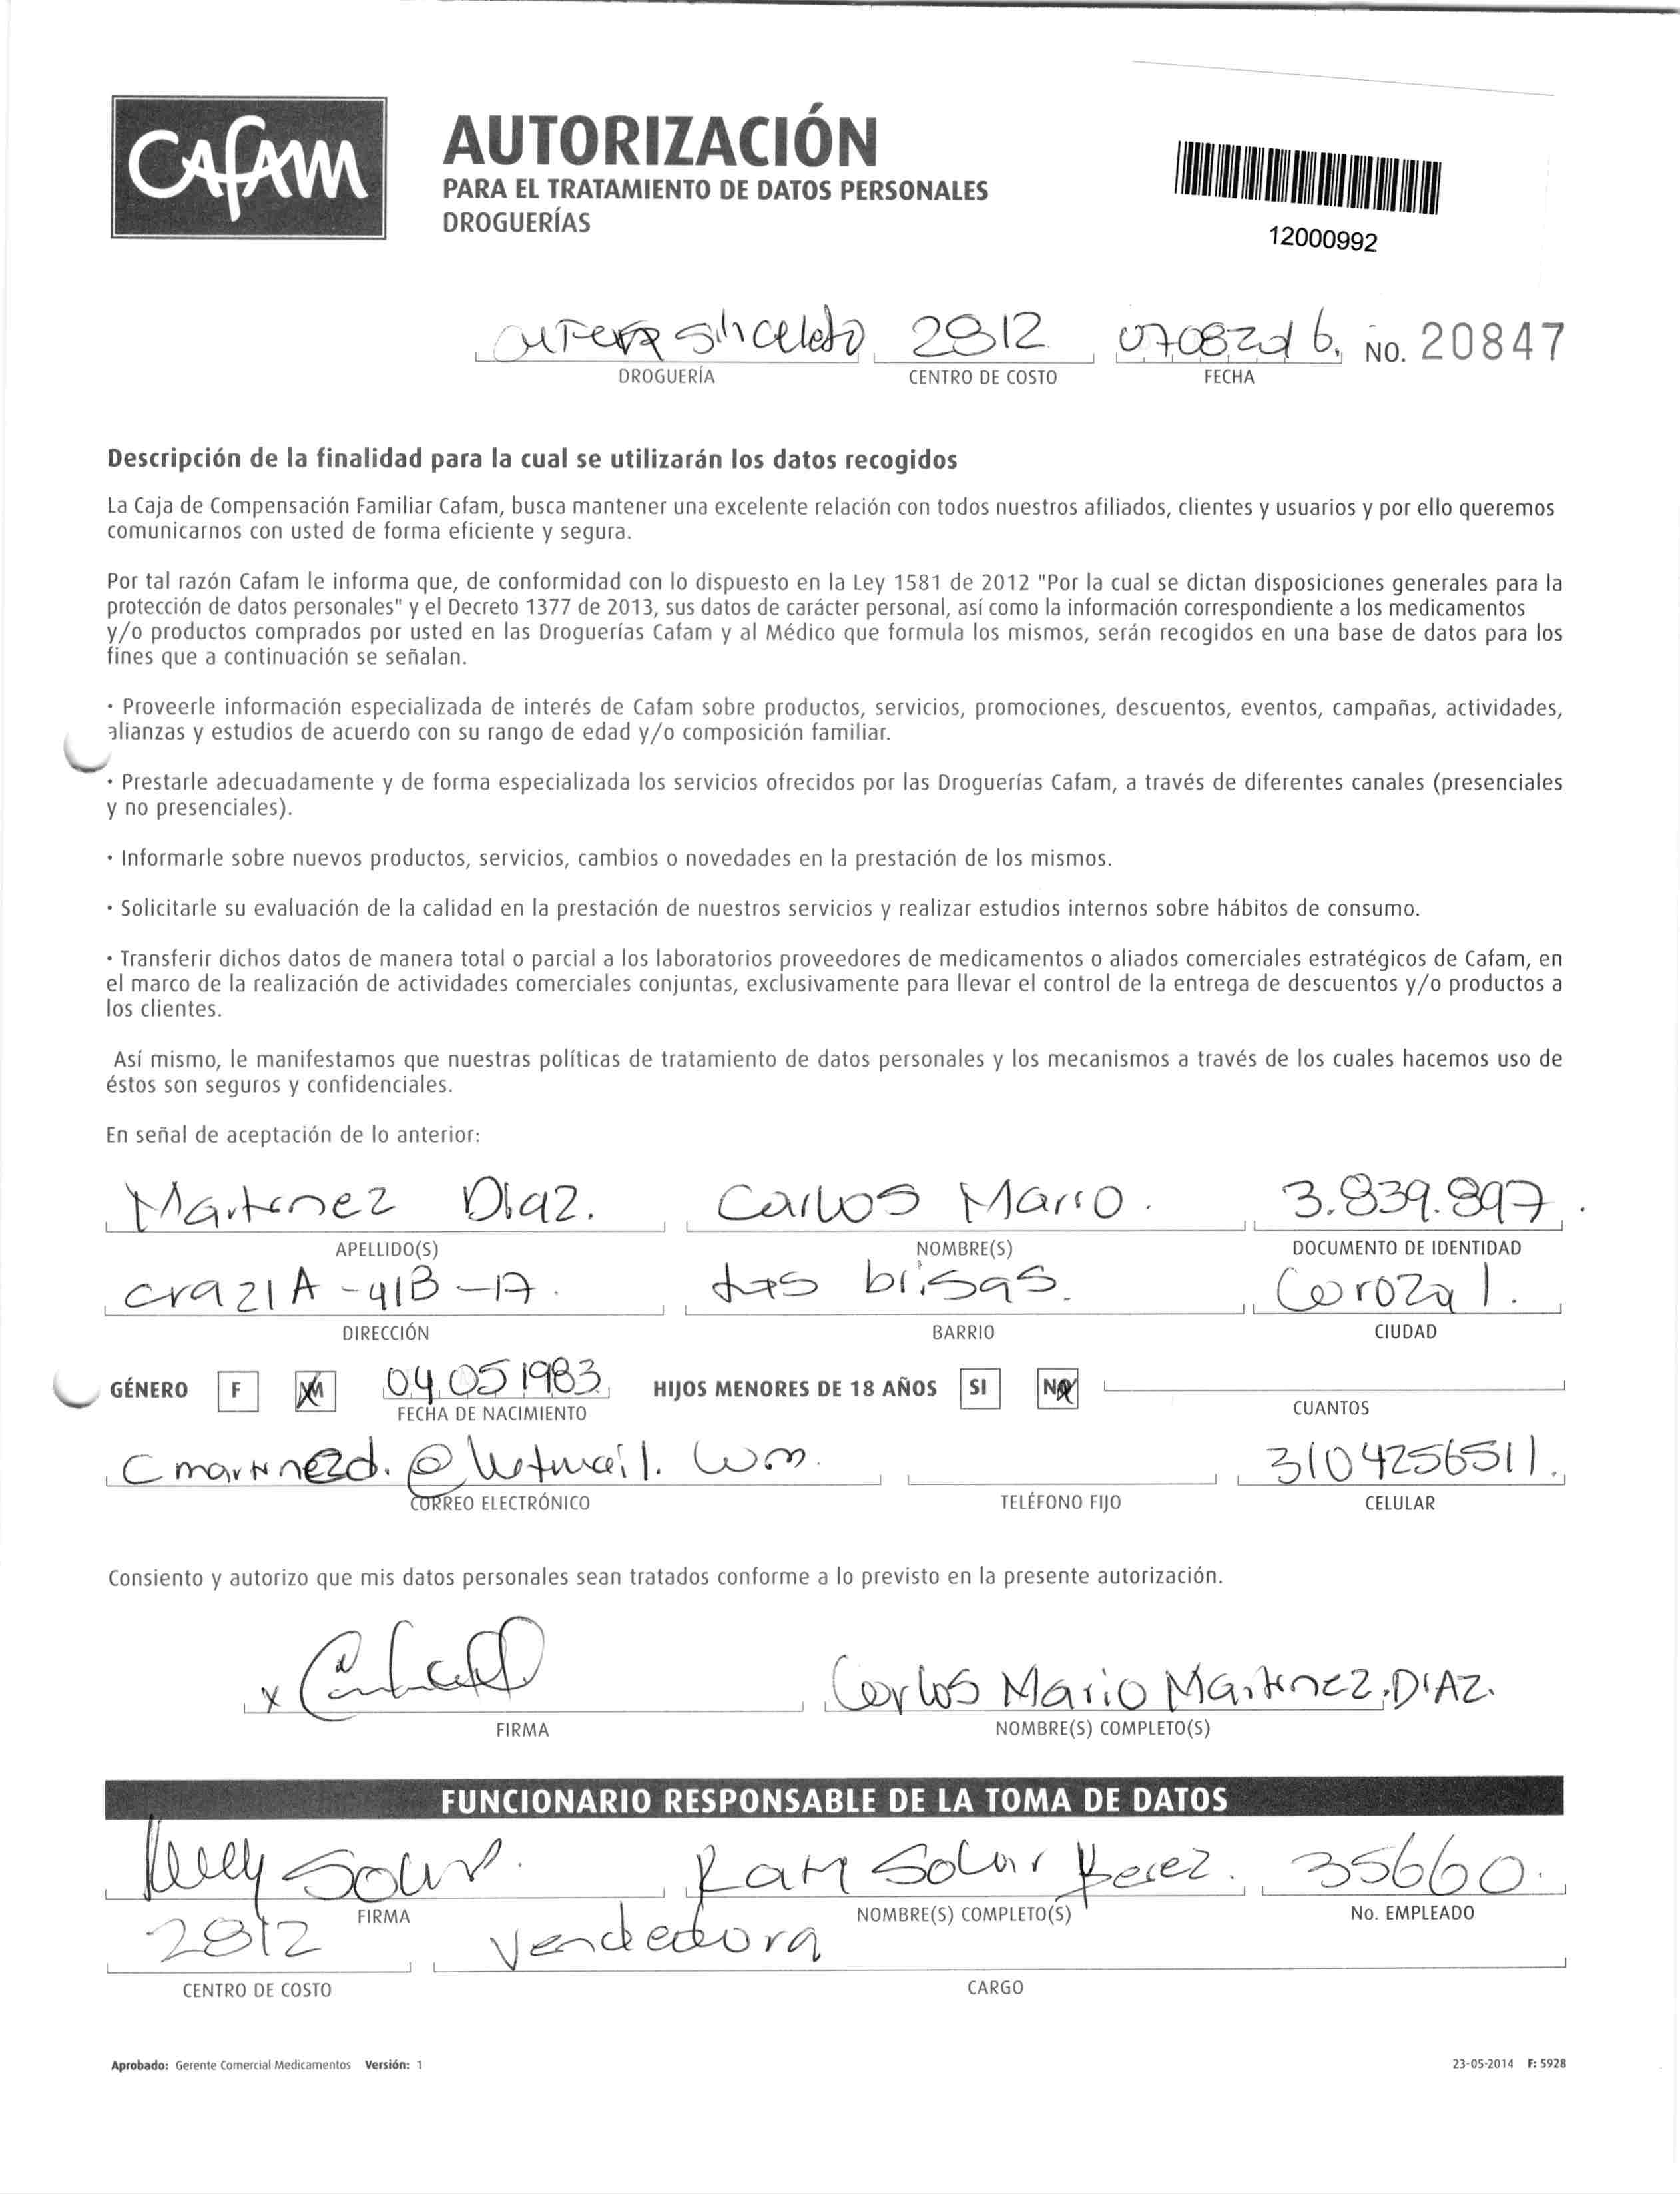 CAFAM
AUTORIZACIÓN
PARA EL TRATAMIENTO DE DATOS PERSONALES
DROGUERÍAS
12000992
2812 07082016. No. 20847
DROGUERÍA CENTRO DE COSTO FECHA
Descripción de la finalidad para la cual se utilizarán los datos recogidos
La Caja de Compensación Familiar Cafam, busca mantener una excelente relación con todos nuestros afiliados, clientes y usuarios y por ello queremos
comunicarnos con usted de forma eficiente y segura.
Por tal razón Cafam le informa que, de conformidad con lo dispuesto en la Ley 1581 de 2012 "Por la cual se dictan disposiciones generales para la
protección de datos personales" y el Decreto 1377 de 2013, sus datos de carácter personal, así como la información correspondiente a los medicamentos
y/o productos comprados por usted en las Droguerías Cafam y al Médico que formula los mismos, serán recogidos en una base de datos para los
fines que a continuación se señalan.
· Proveerle información especializada de interés de Cafam sobre productos, servicios, promociones, descuentos, eventos, campañas, actividades,
alianzas y estudios de acuerdo con su rango de edad y/o composición familiar.
· Prestarle adecuadamente y de forma especializada los servicios ofrecidos por las Droguerías Cafam, a través de diferentes canales (presenciales
y no presenciales).
· Informarle sobre nuevos productos, servicios, cambios o novedades en la prestación de los mismos.
· Solicitarle su evaluación de la calidad en la prestación de nuestros servicios y realizar estudios internos sobre hábitos de consumo.
· Transferir dichos datos de manera total o parcial a los laboratorios proveedores de medicamentos o aliados comerciales estratégicos de Cafam, en
el marco de la realización de actividades comerciales conjuntas, exclusivamente para llevar el control de la entrega de descuentos y/o productos a
los clientes.
Así mismo, le manifestamos que nuestras políticas de tratamiento de datos personales y los mecanismos a través de los cuales hacemos uso de
éstos son seguros y confidenciales.
En señal de aceptación de lo anterior:
Martinez Diaz. Carlos Mario. 3.839.897.
APELLIDO(S) NOMBRE(S) DOCUMENTO DE IDENTIDAD
cra 21 A - 41B - 17. Las brisas. Corozal.
DIRECCIÓN BARRIO CIUDAD
GÉNERO F M 04 05 1983 HIJOS MENORES DE 18 AÑOS SI NO
FECHA DE NACIMIENTO CUANTOS
Cmartinezd.@hotmail.com. 3104256511.
CORREO ELECTRÓNICO TELÉFONO FIJO CELULAR
Consiento y autorizo que mis datos personales sean tratados conforme a lo previsto en la presente autorización.
x Carlos Mario Martinez.DiAZ.
FIRMA NOMBRE(S) COMPLETO(S)
FUNCIONARIO RESPONSABLE DE LA TOMA DE DATOS
Solar Perez. 35660.
FIRMA NOMBRE(S) COMPLETO(S) No. EMPLEADO
2812 Vendedora
CENTRO DE COSTO CARGO
Aprobado: Gerente Comercial Medicamentos Versión: 1 23-05-2014 F: 5928